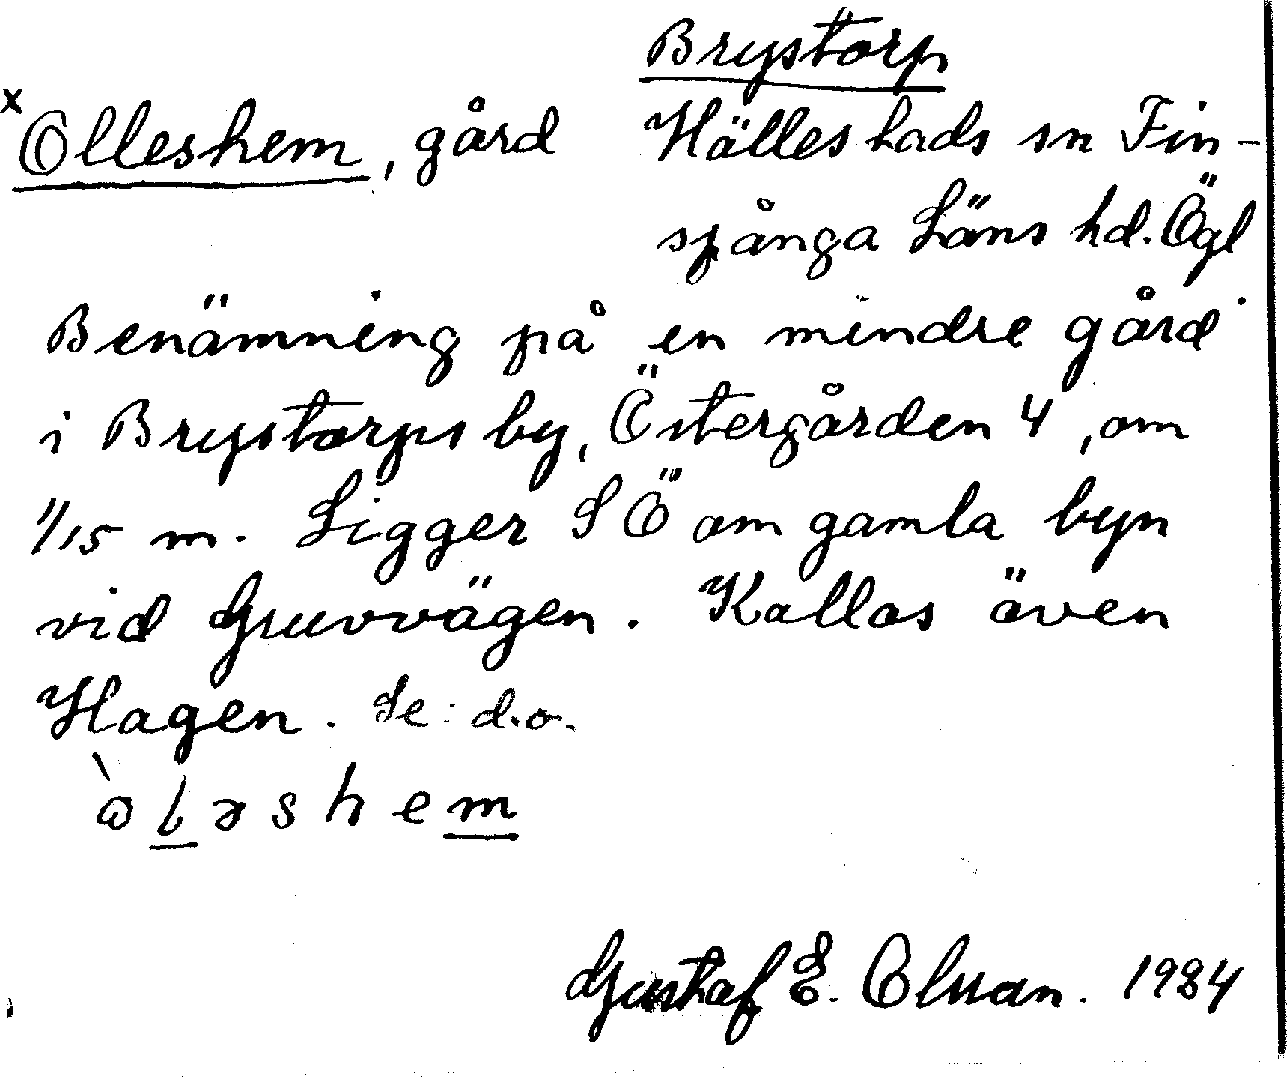 Brystorp
x Olleshem, gård Hällestads sn Fin-
spånga Läns hd. Ögl.
Benämning på en mindre gård
i Brystorps by, Östergården 4, om
1/15 m. Ligger SÖ om gamla byn
vid Gruvvägen. Kallas även
Hagen. Se: d.o.
òləshem
Gustaf E. Olsson. 1984